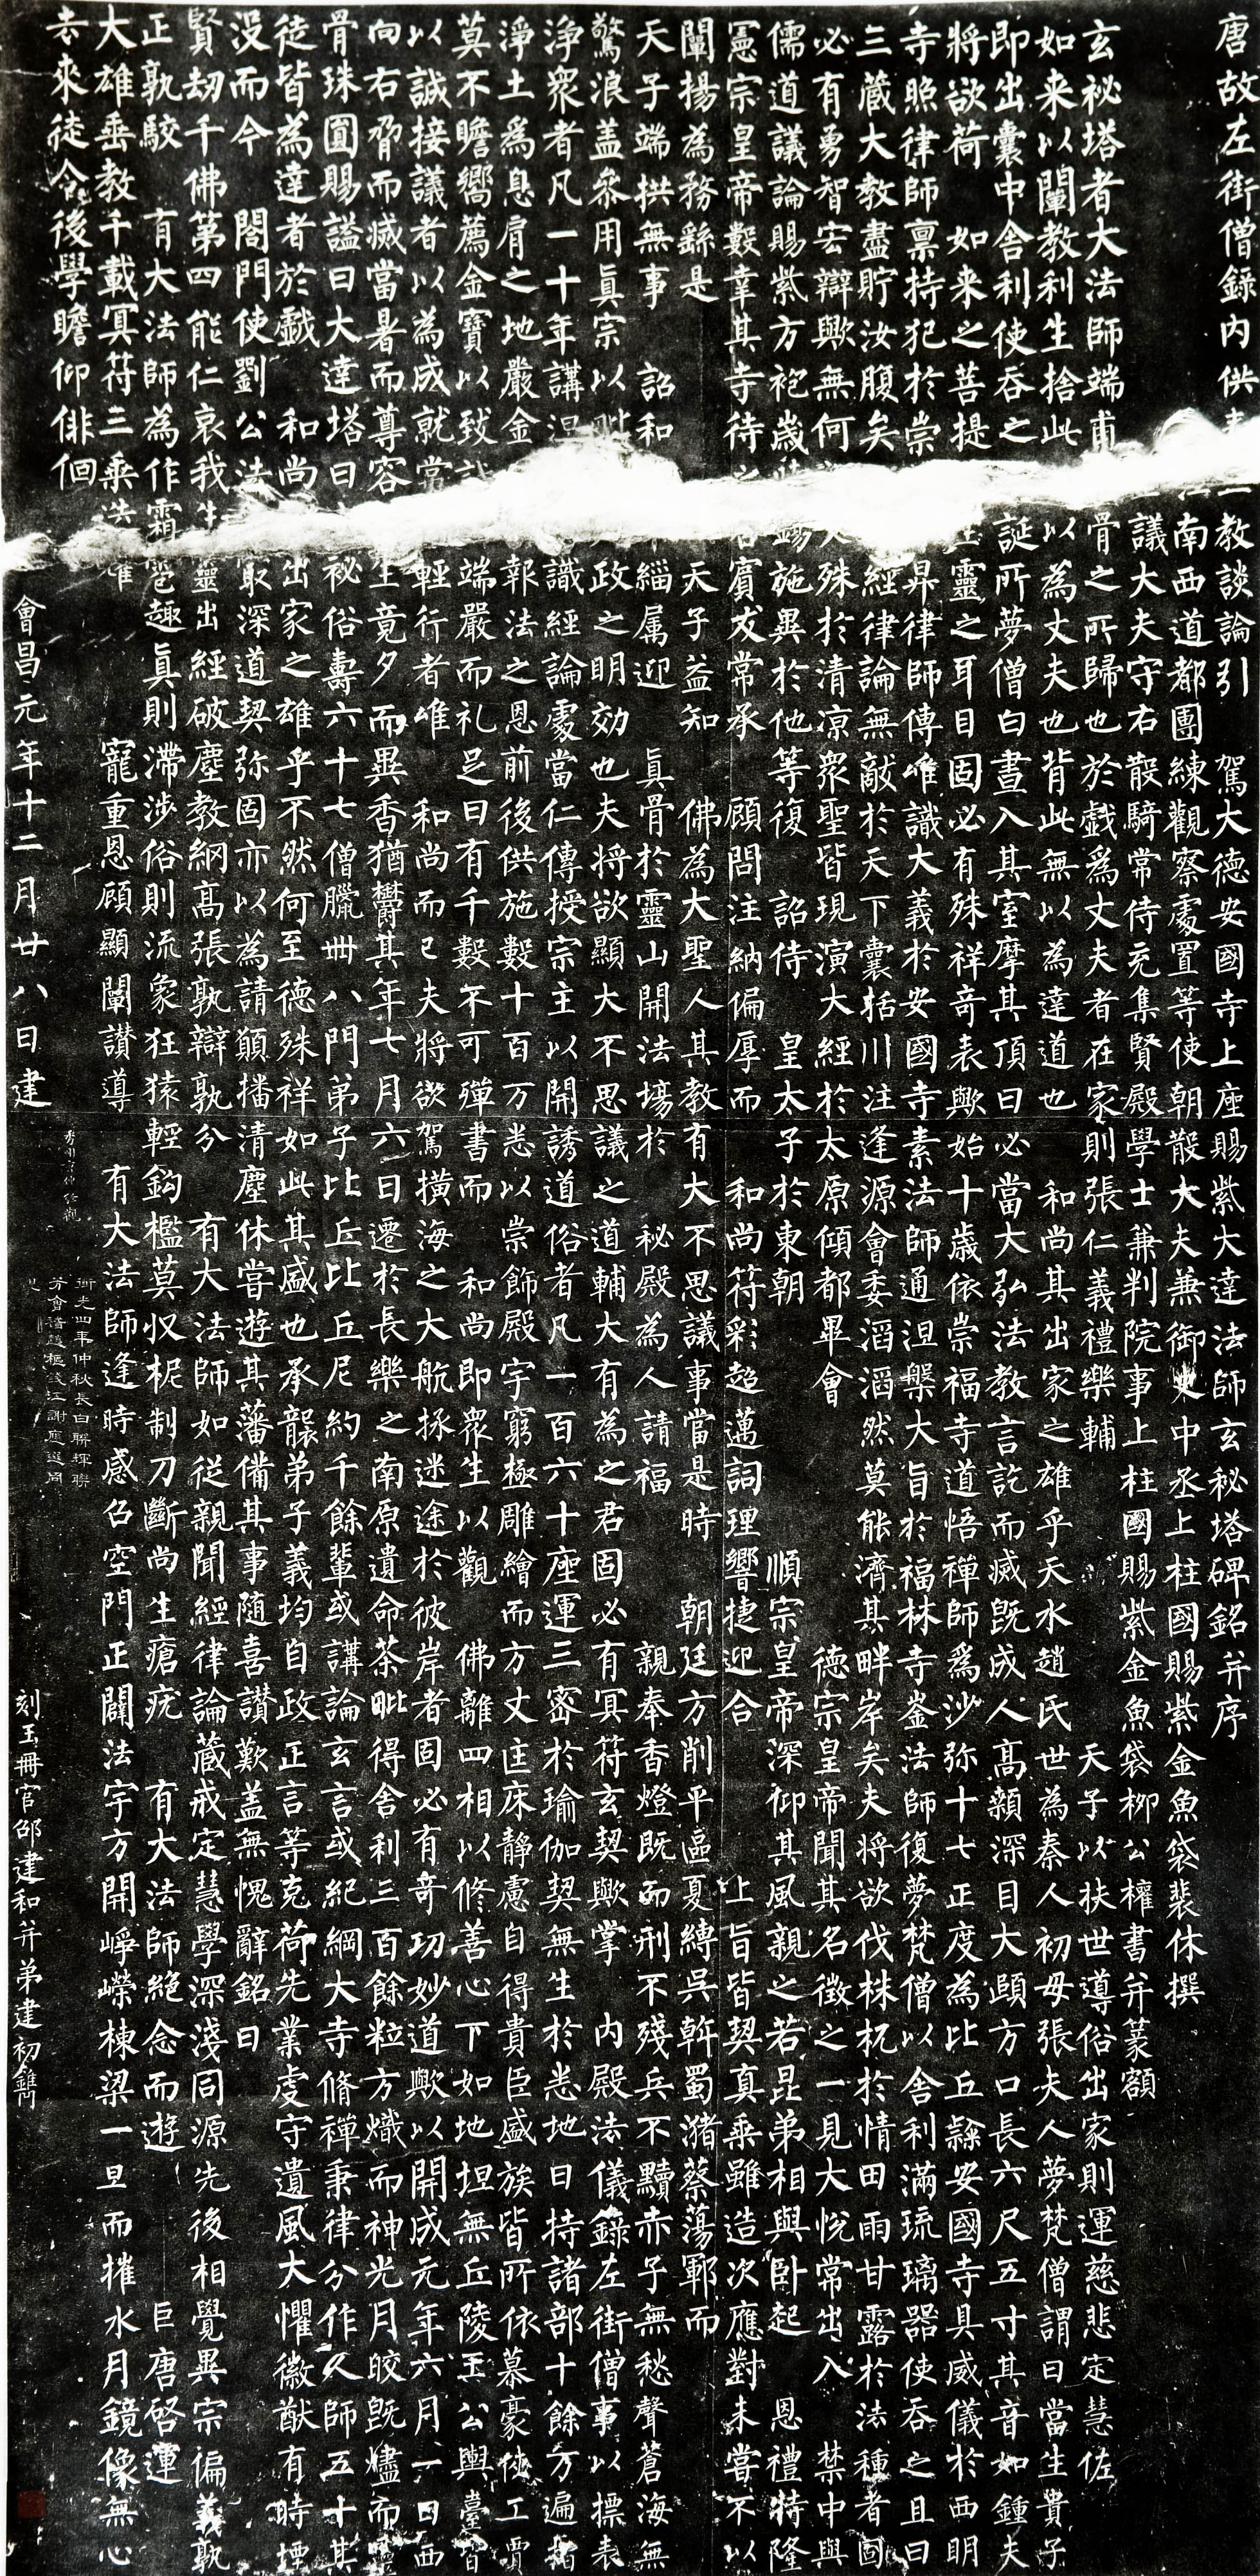 唐故左街僧錄內供教談論引 駕大德安國寺上座賜紫大達法師玄秘塔碑銘并序
南西道都團練觀察處置等使朝散大夫兼御史中丞上柱國賜紫金魚袋裴休撰
議大夫守右散騎常侍充集賢殿學士兼判院事上柱國賜紫金魚袋柳公權書并篆額
玄秘塔者大法師端甫骨之所歸也於戲為丈夫者在家則張仁義禮樂輔 天子以扶世導俗出家則運慈悲定慧佐
如来以闡教利生捨此以為丈夫也背此無以為達道也 和尚其出家之雄乎天水趙氏世為秦人初母張夫人夢梵僧謂曰當生貴子
即出囊中舍利使吞之誕所夢僧白晝入其室摩其頂曰必當大弘法教言訖而滅既成人高顙深目大頤方口長六尺五寸其音如鍾夫
將欲荷 如来之菩提生靈之耳目固必有殊祥奇表歟始十歲依崇福寺道悟禪師為沙弥十七正度為比丘隸安國寺具威儀於西明
寺照律師禀持犯於崇昇律師傳唯識大義於安國寺素法師通涅槃大旨於福林寺崟法師復夢梵僧以舍利滿琉璃器使吞之且曰
三藏大教盡貯汝腹矣經律論無敵於天下囊括川注逢源會委滔滔然莫能濟其畔岸矣夫將欲伐株杌於情田雨甘露於法種者固
必有勇智宏辯歟無何殊於清凉衆聖皆現演大經於太原傾都畢會 德宗皇帝聞其名徵之一見大悅常出入 禁中與
儒道議論賜紫方袍歲時錫施異於他等復 詔侍 皇太子於東朝 順宗皇帝深仰其風親之若昆弟相與卧起 恩禮特隆
憲宗皇帝數幸其寺待之若賓友常承 顧問注納偏厚而 和尚符彩超邁詞理響捷迎合 上旨皆契真乘雖造次應對未嘗不以
闡揚為務繇是 天子益知 佛為大聖人其教有大不思議事當是時 朝廷方削平區夏縛吳斡蜀瀦蔡蕩鄆而
天子端拱無事 詔和緇属迎 真骨於靈山開法場於 秘殿為人請福 親奉香燈既而刑不殘兵不黷赤子無愁聲蒼海無
驚浪盖參用真宗以毗政之明効也夫將欲顯大不思議之道輔大有為之君固必有冥符玄契歟掌 內殿法儀錄左街僧事以標表
淨衆者凡一十年講涅識經論處當仁傳授宗主以開誘道俗者凡一百六十座運三密於瑜伽契無生於悉地日持諸部十餘万遍指
淨土為息肩之地嚴金報法之恩前後供施數十百万悉以崇飾殿宇窮極雕繪而方丈匡床靜慮自得貴臣盛族皆所依慕豪俠工賈
莫不瞻嚮薦金寶以致端嚴而礼足日有千數不可殫書而 和尚即衆生以觀 佛離四相以修善心下如地坦無丘陵王公輿臺皆
以誠接議者以為成就常輕行者唯 和尚而已夫將欲駕橫海之大航拯迷途於彼岸者固必有奇功妙道歟以開成元年六月一日西
向右脅而滅當暑而尊容生竟夕而異香猶鬱其年七月六日遷於長樂之南原遺命茶毗得舍利三百餘粒方熾而神光月皎既燼而靈
骨珠圓賜謚曰大達塔曰秘俗壽六十七僧臘卌八門弟子比丘比丘尼約千餘輩或講論玄言或紀綱大寺脩禪秉律分作人師五十其
徒皆為達者於戲 和尚出家之雄乎不然何至德殊祥如此其盛也承襲弟子義均自政正言等克荷先業虔守遺風大懼徽猷有時堙
没而今 閤門使劉公法最深道契弥固亦以為請願播清塵休嘗遊其藩備其事随喜讃歎盖無愧辭銘曰
賢劫千佛第四能仁哀我生靈出經破塵教網高張孰辯孰分 有大法師如從親聞經律論藏戒定慧學深淺同源先後相覺異宗偏義孰
正孰駮 有大法師為作霜雹趣真則滯涉俗則流象狂猿輕鈎檻莫收柅制刀斷尚生瘡疣 有大法師絶念而遊 巨唐啓運
大雄垂教千載冥符三乘迭耀 寵重恩顧顯闡讃導 有大法師逢時感召空門正闢法宇方開崢嶸棟梁一旦而摧水月鏡像無心
去來徒令後學瞻仰俳佪
會昌元年十二月廿八日建 刻玉冊官邵建和并弟建初鐫